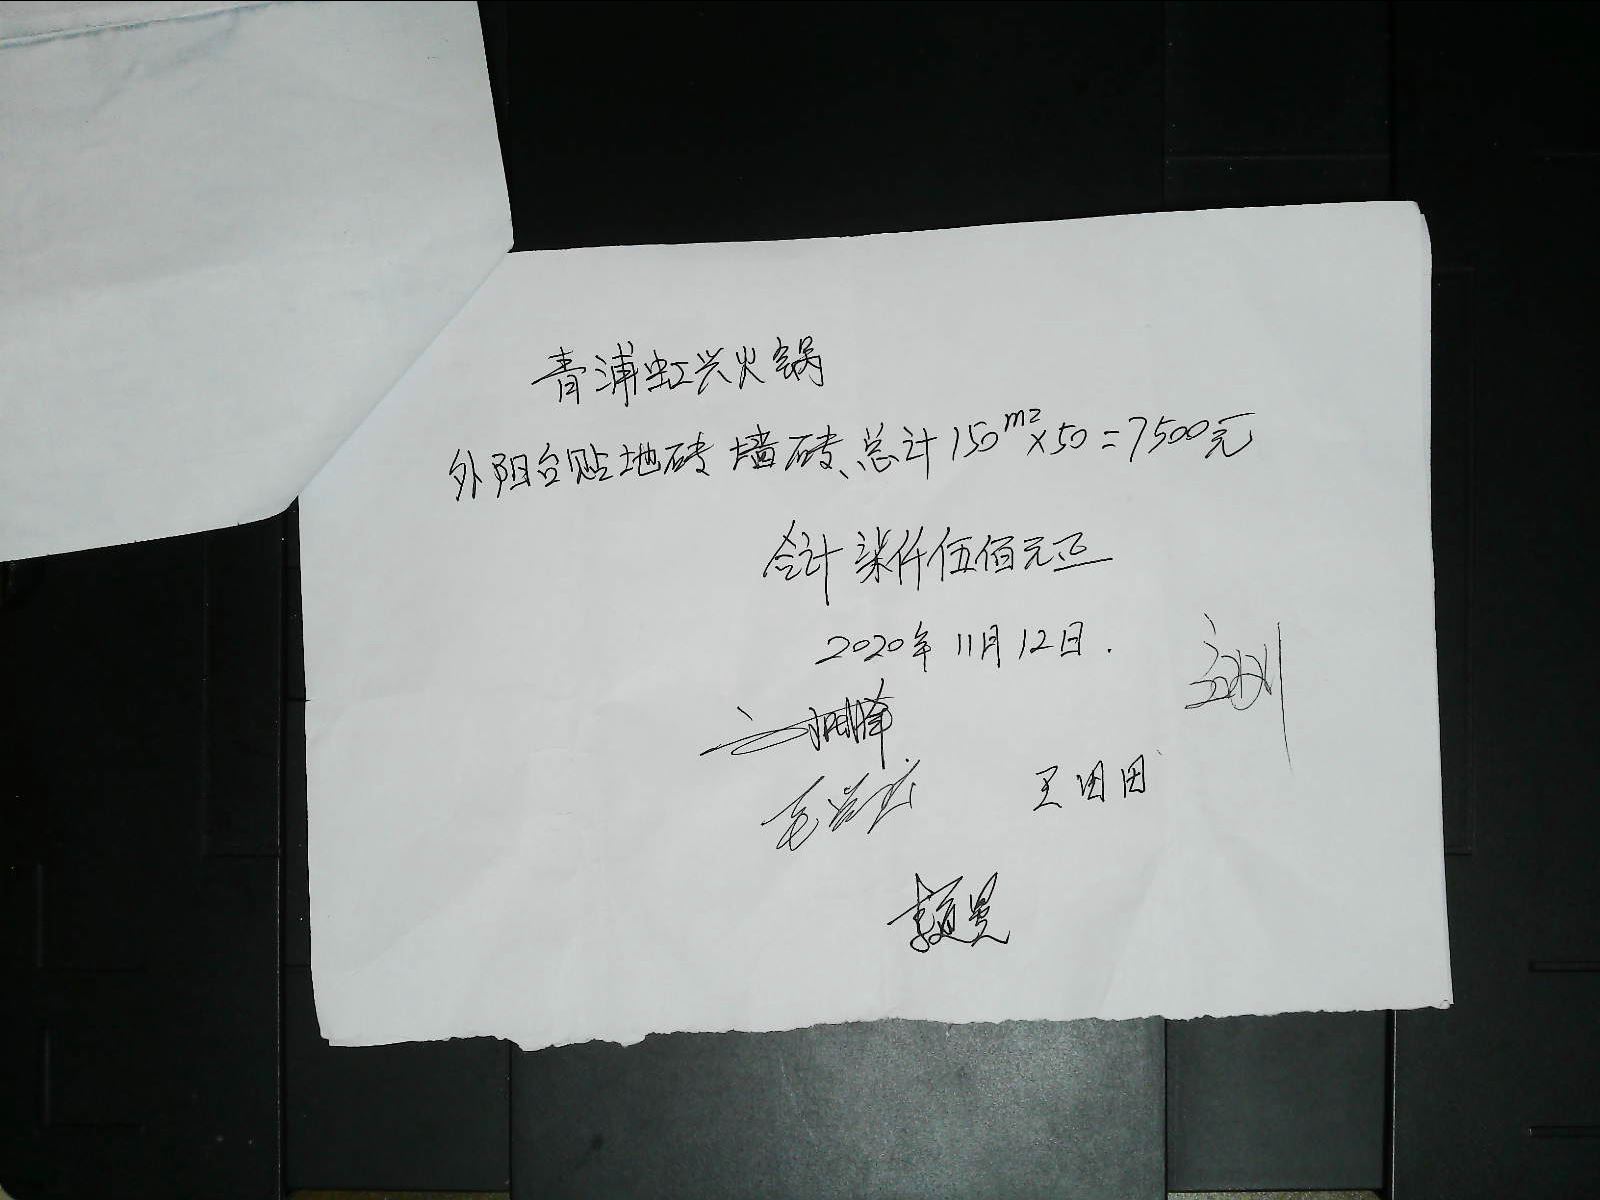 青浦虹兴火锅
外阳台贴地砖墙砖、总计150m²×50=7500元
合计柒仟伍佰元正
2020年11月12日.
王田田